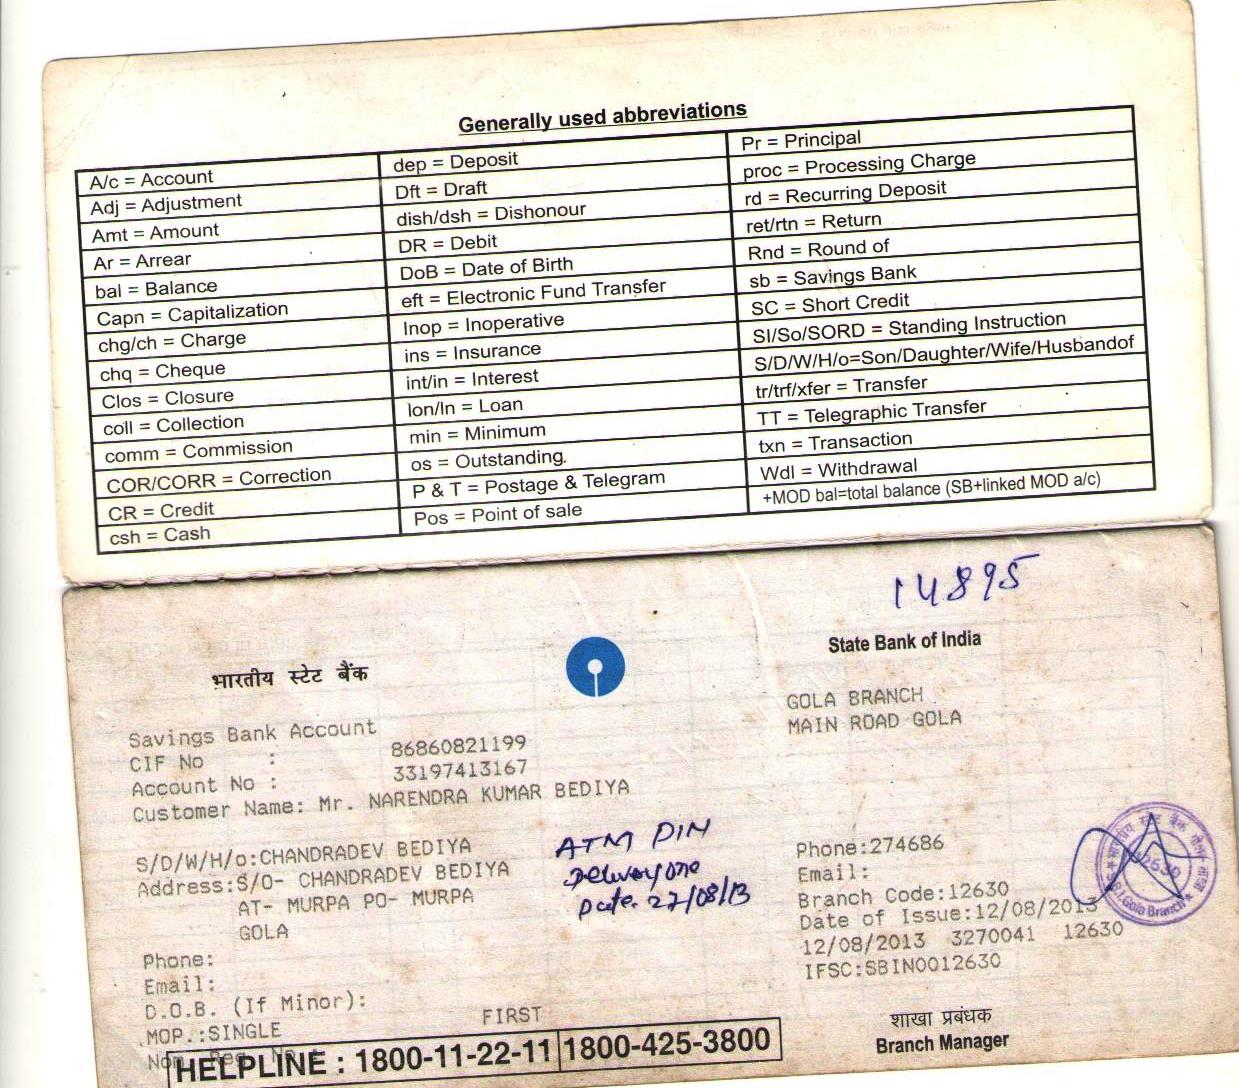 Generally used abbreviations
A/c = Account
Adj = Adjustment
Amt = Amount
Ar = Arrear
bal = Balance
Capn = Capitalization
chg/ch = Charge
chq = Cheque
Clos = Closure
coll = Collection
comm = Commission
COR/CORR = Correction
CR = Credit
csh = Cash
dep = Deposit
Dft = Draft
dish/dsh = Dishonour
DR = Debit
DoB = Date of Birth
eft = Electronic Fund Transfer
Inop = Inoperative
ins = Insurance
int/in = Interest
lon/ln = Loan
min = Minimum
os = Outstanding.
P & T = Postage & Telegram
Pos = Point of sale
Pr = Principal
proc = Processing Charge
rd = Recurring Deposit
ret/rtn = Return
Rnd = Round of
sb = Savings Bank
SC = Short Credit
SI/So/SORD = Standing Instruction
S/D/W/H/o=Son/Daughter/Wife/Husbandof
tr/trf/xfer = Transfer
TT = Telegraphic Transfer
txn = Transaction
Wdl = Withdrawal
+MOD bal=total balance (SB+linked MOD a/c)
14895
भारतीय स्टेट बैंक
State Bank of India
GOLA BRANCH
MAIN ROAD GOLA
Savings Bank Account
CIF No : 86860821199
Account No : 33197413167
Customer Name: Mr. NARENDRA KUMAR BEDIYA
S/D/W/H/o:CHANDRADEV BEDIYA
Address:S/O- CHANDRADEV BEDIYA
AT- MURPA PO- MURPA
GOLA
ATM PIN
Date. 27/08/13
Phone:274686
Email:
Branch Code:12630
Date of Issue:12/08/2013
12/08/2013 3270041 12630
IFSC:SBIN0012630
12630
Gola Branch
Phone:
Email:
D.O.B. (If Minor):
MOP.:SINGLE FIRST
HELPLINE : 1800-11-22-11 1800-425-3800
शाखा प्रबंधक
Branch Manager